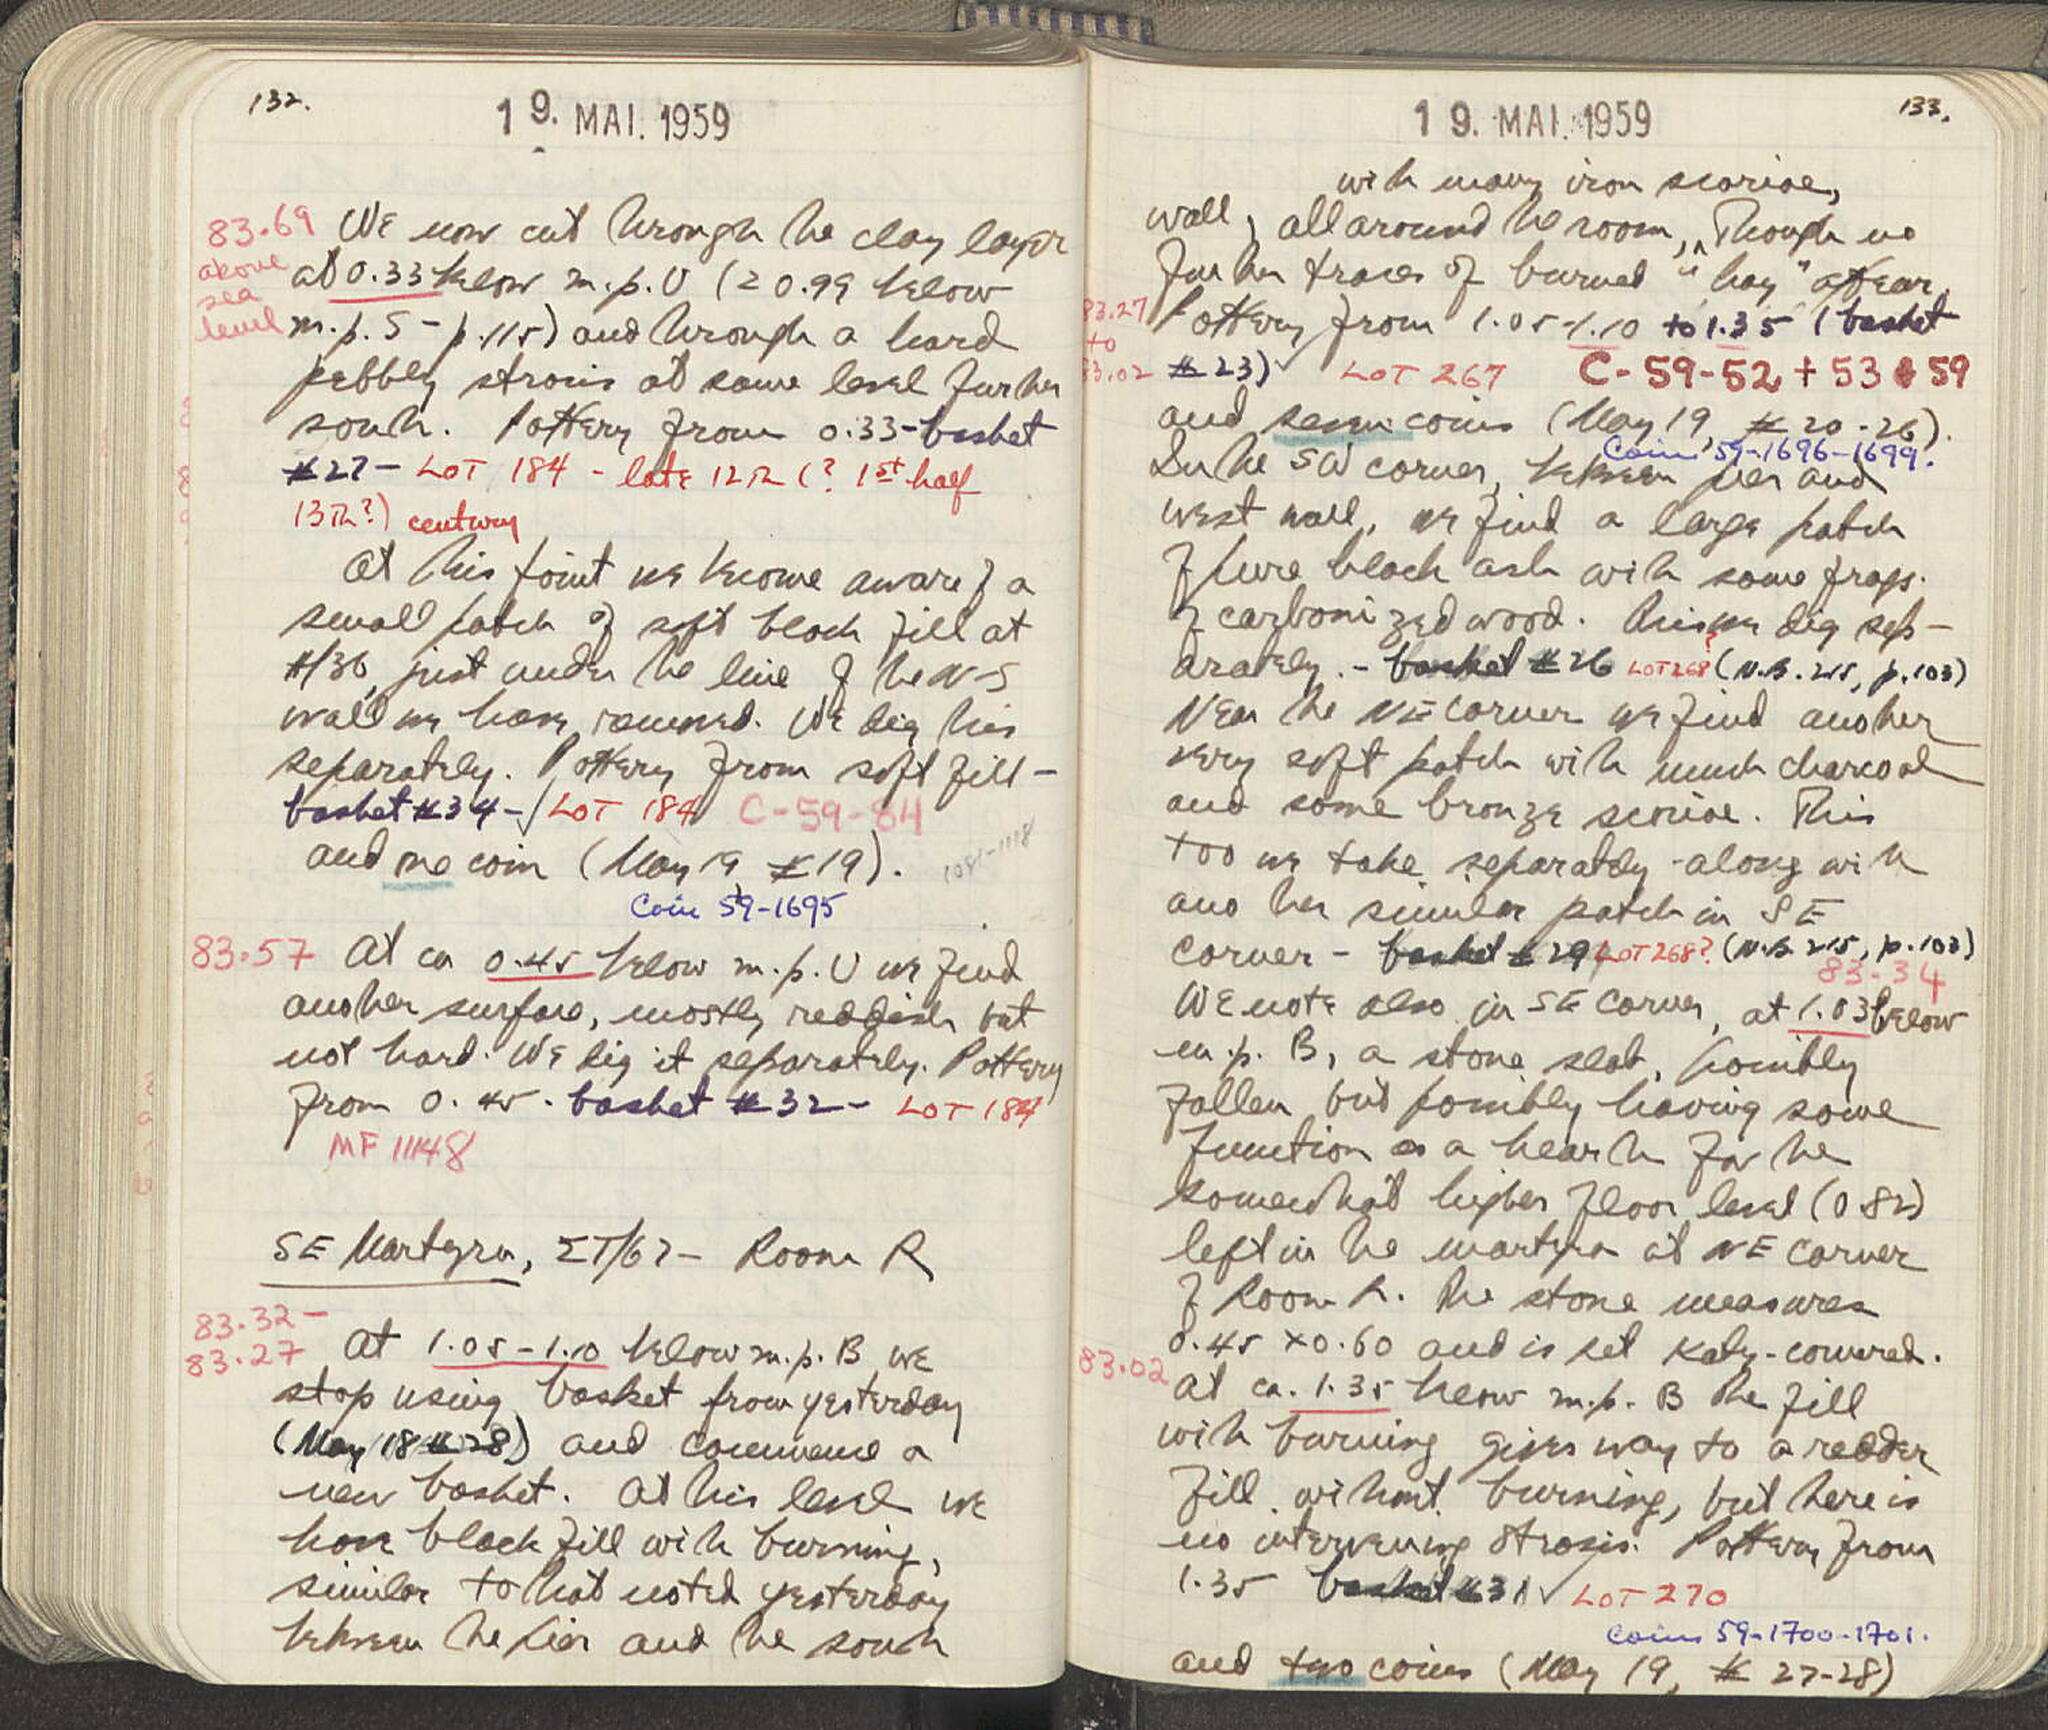 132.
19. MAI. 1959
83.69
above
sea
level
We now cut through the clay layer
at 0.33 below m.p. U (= 0.99 below
m.p. S - p.115) and through a hard
pebbly strosis at same level further
south. Pottery from 0.33 - basket
#27 - LOT 184 - late 12th (? 1st half
13th?) century
At this point we become aware of a
small patch of soft black fill at
#/36, just under the line of the N-S
wall we have removed. We dig this
separately. Pottery from soft fill -
basket #34 - √ LOT 184 C-59-84
and one coin (May 19 #19).
1081-1118
Coin 59-1695
83.57
At ca 0.45 below m.p. U we find
another surface, mostly reddish but
not hard. We dig it separately. Pottery
from 0.45 - basket #32 - LOT 184
MF 11148
SE Martyra, ΣT/67 - Room R
83.32 -
83.27
At 1.05 - 1.10 below m.p. B we
stop using basket from yesterday
(May 18 #28) and commence a
new basket. At this level we
have black fill with burning,
similar to that noted yesterday
between the pier and the south
19. MAI. 1959
133.
with many iron scoriae,
wall, all around the room, ^ though no
further traces of burned "hay" appear.
83.27
to
83.02
Pottery from 1.05-1.10 to 1.35 (basket
#23) √ LOT 267 C-59-52 + 53 + 59
and seven coins (May 19, #20-26).
Coins 59-1696-1699.
In the SW corner, between pier and
west wall, we find a large patch
of pure black ash with some frags.
of carbonized wood. This we dig sep-
arately. - basket #26 LOT 268? (N.B. 215, p.103)
Near the NE corner we find another
very soft patch with much charcoal
and some bronze scoriae. This
too we take separately along with
another similar patch in SE
corner - basket #29 LOT 268? (N.B. 215, p.103)
83.34
We note also in SE corner, at 1.03 below
m.p. B, a stone slab, possibly
fallen but possibly having some
function as a hearth for the
somewhat higher floor level (0.82)
left in the martyra at NE corner
of Room R. The stone measures
0.45 x 0.60 and is set katy-cornered.
83.02
At ca. 1.35 below m.p. B the fill
with burning gives way to a redder
fill without burning, but there is
no intervening strosis. Pottery from
1.35 basket #31 √ LOT 270
Coins 59-1700-1701.
and two coins (May 19, #27-28)